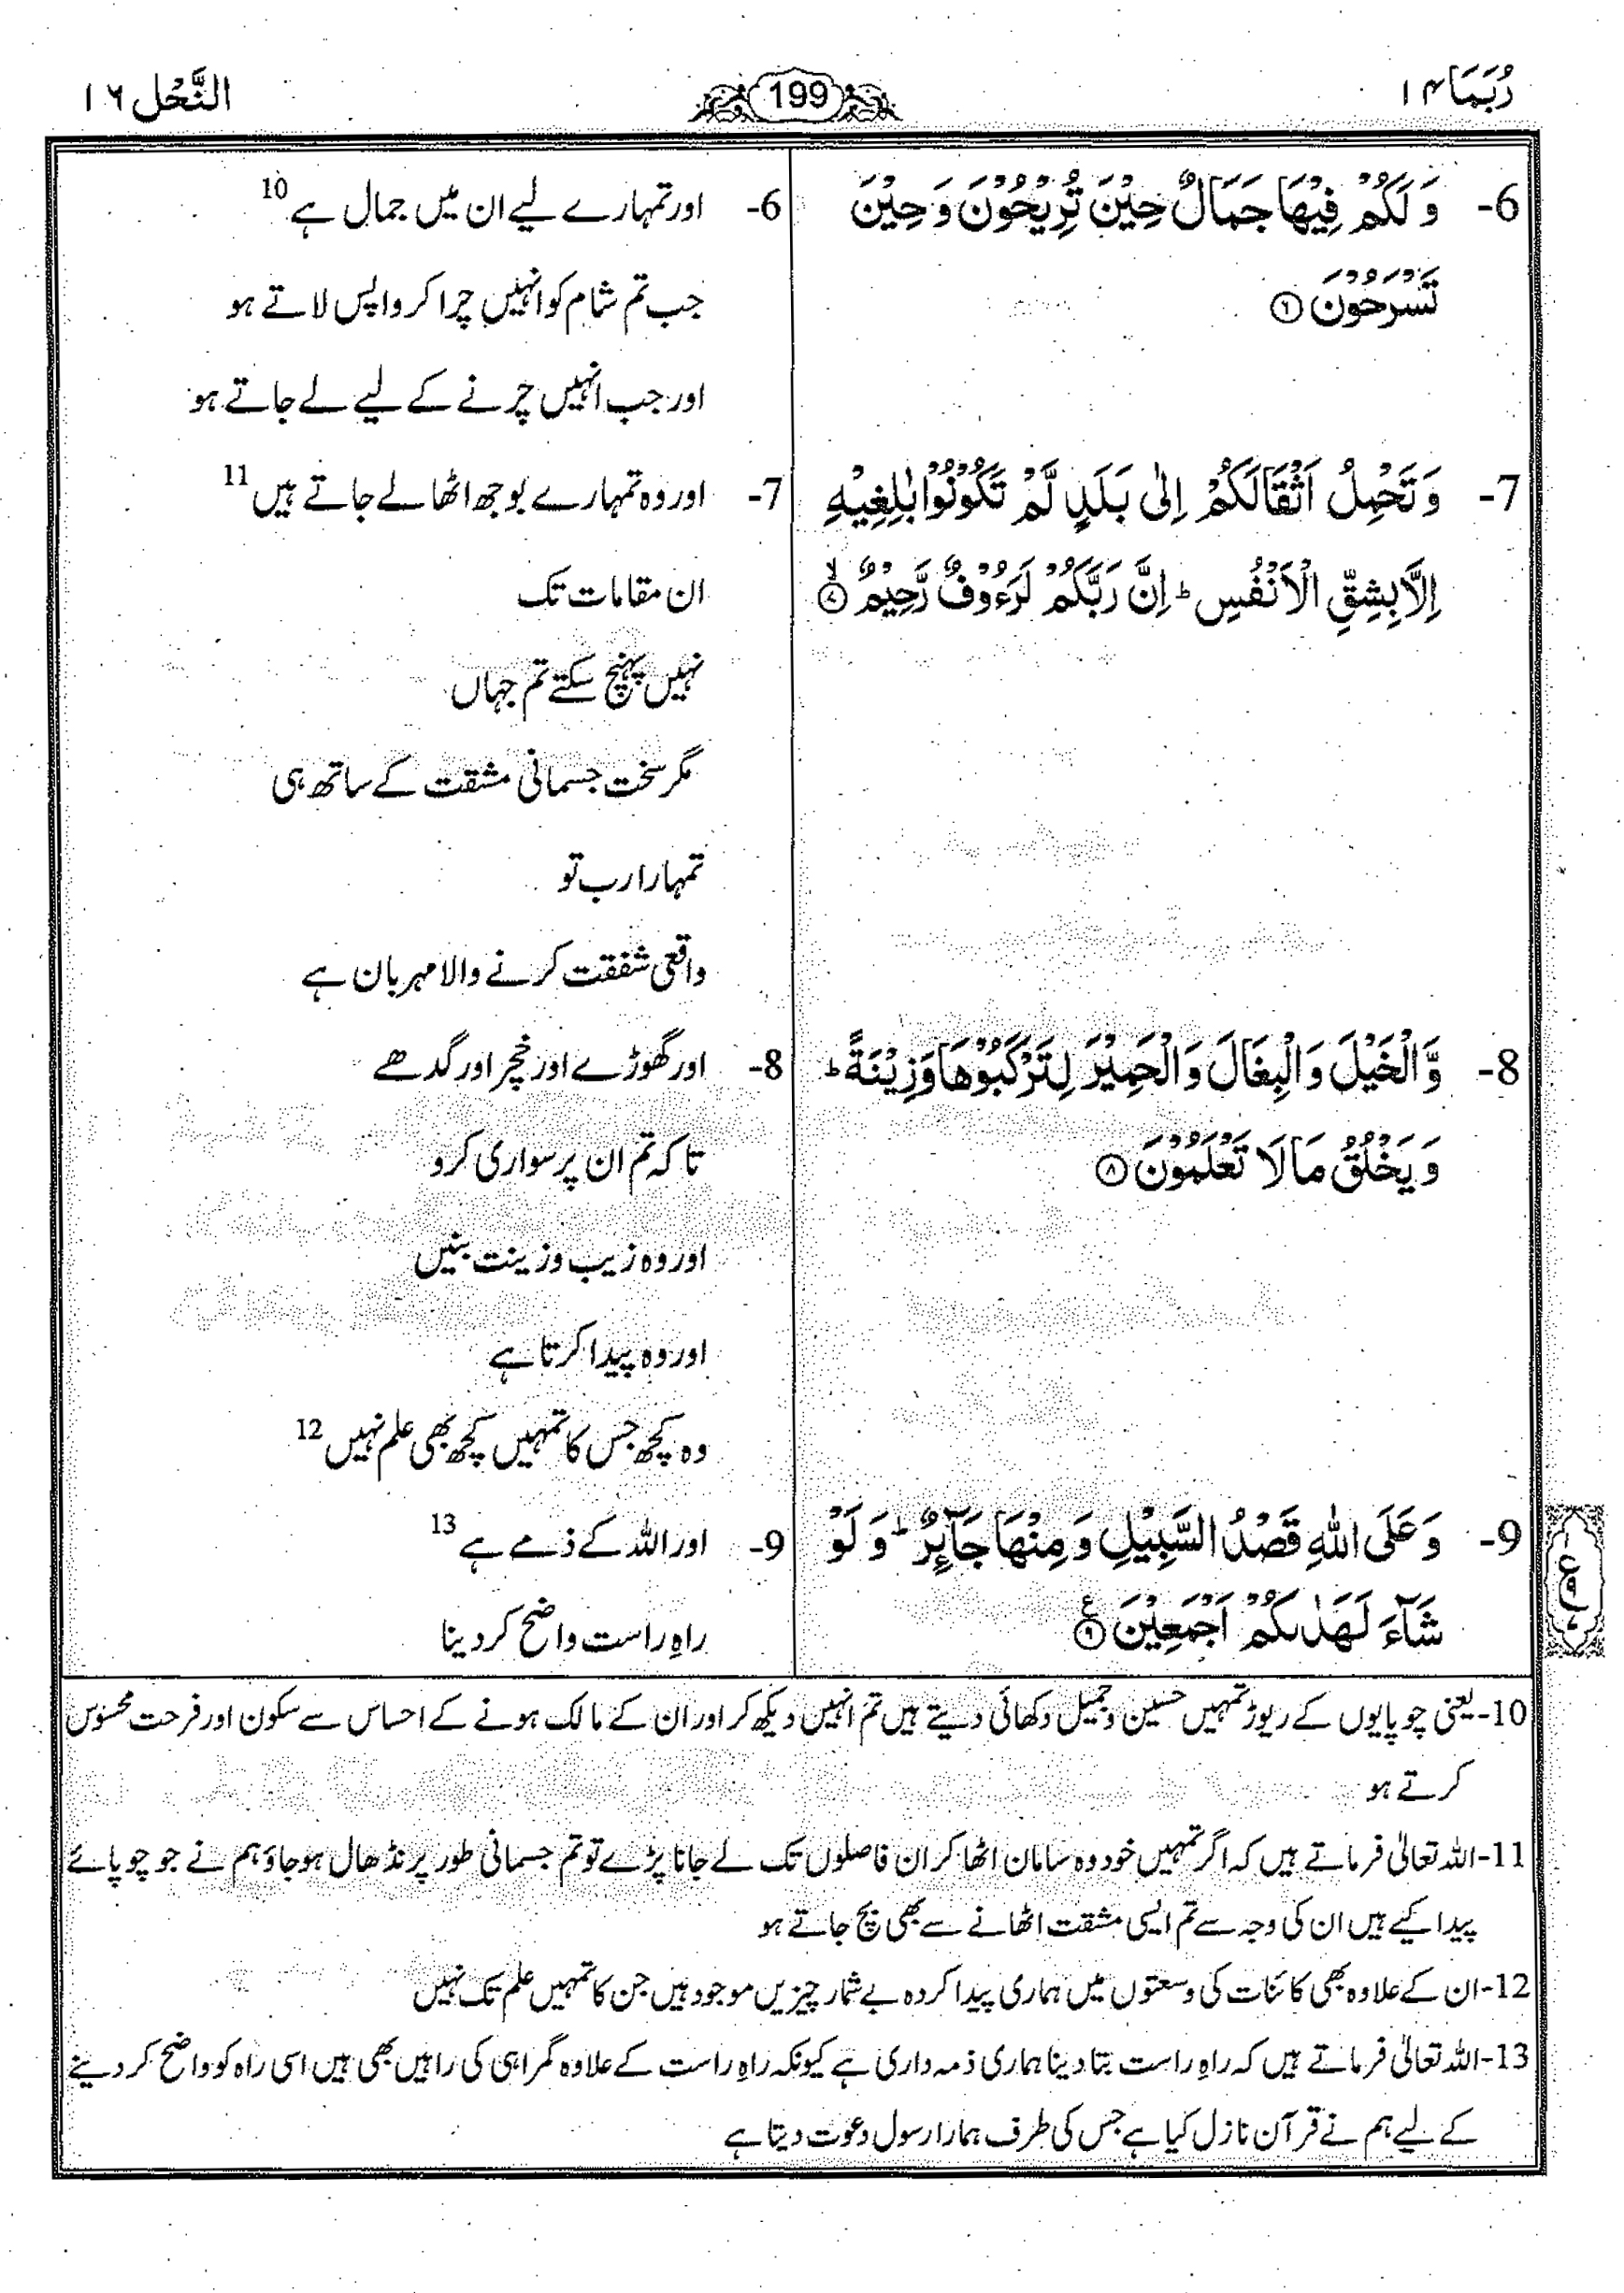 رُبَمَا ۱۴
199
النَّحْل ۱۶
6- وَ لَكُمْ فِيْهَا جَمَالٌ حِيْنَ تُرِيْحُوْنَ وَ حِيْنَ
تَسْرَحُوْنَ ۶
6- اور تمہارے لیے ان میں جمال ہے 10
جب تم شام کو انہیں چرا کر واپس لاتے ہو
اور جب انہیں چرنے کے لیے لے جاتے ہو
7- وَ تَحْمِلُ اَثْقَالَكُمْ اِلٰى بَلَدٍ لَّمْ تَكُوْنُوْا بٰلِغِيْهِ
اِلَّا بِشِقِّ الْاَنْفُسِ ؕ اِنَّ رَبَّكُمْ لَرَءُوْفٌ رَّحِيْمٌ ۙ ۷
7- اور وہ تمہارے بوجھ اٹھا لے جاتے ہیں 11
ان مقامات تک
نہیں پہنچ سکتے تم جہاں
مگر سخت جسمانی مشقت کے ساتھ ہی
تمہارا رب تو
واقعی شفقت کرنے والا مہربان ہے
8- وَّ الْخَيْلَ وَ الْبِغَالَ وَ الْحَمِيْرَ لِتَرْكَبُوْهَا وَ زِيْنَةً ؕ
وَ يَخْلُقُ مَا لَا تَعْلَمُوْنَ ۸
8- اور گھوڑے اور خچر اور گدھے
تا کہ تم ان پر سواری کرو
اور وہ زیب و زینت بنیں
اور وہ پیدا کرتا ہے
وہ کچھ جس کا تمہیں کچھ بھی علم نہیں 12
9- وَ عَلَى اللّٰهِ قَصْدُ السَّبِيْلِ وَ مِنْهَا جَآئِرٌ ؕ وَ لَوْ
شَآءَ لَهَدٰىكُمْ اَجْمَعِيْنَ ۹ ع
9- اور اللہ کے ذمے ہے 13
راہِ راست واضح کر دینا
10- یعنی چوپایوں کے ریوڑ تمہیں حسین و جمیل دکھائی دیتے ہیں تم انہیں دیکھ کر اور ان کے مالک ہونے کے احساس سے سکون اور فرحت محسوس
کرتے ہو
11- اللہ تعالیٰ فرماتے ہیں کہ اگر تمہیں خود وہ سامان اٹھا کر ان فاصلوں تک لے جانا پڑے تو تم جسمانی طور پر نڈھال ہو جاؤ ہم نے جو چوپائے
پیدا کیے ہیں ان کی وجہ سے تم ایسی مشقت اٹھانے سے بھی بچ جاتے ہو
12- ان کے علاوہ بھی کائنات کی وسعتوں میں ہماری پیدا کردہ بے شمار چیزیں موجود ہیں جن کا تمہیں علم تک نہیں
13- اللہ تعالیٰ فرماتے ہیں کہ راہِ راست بتا دینا ہماری ذمہ داری ہے کیونکہ راہِ راست کے علاوہ گمراہی کی راہیں بھی ہیں اسی راہ کو واضح کر دینے
کے لیے ہم نے قرآن نازل کیا ہے جس کی طرف ہمارا رسول دعوت دیتا ہے